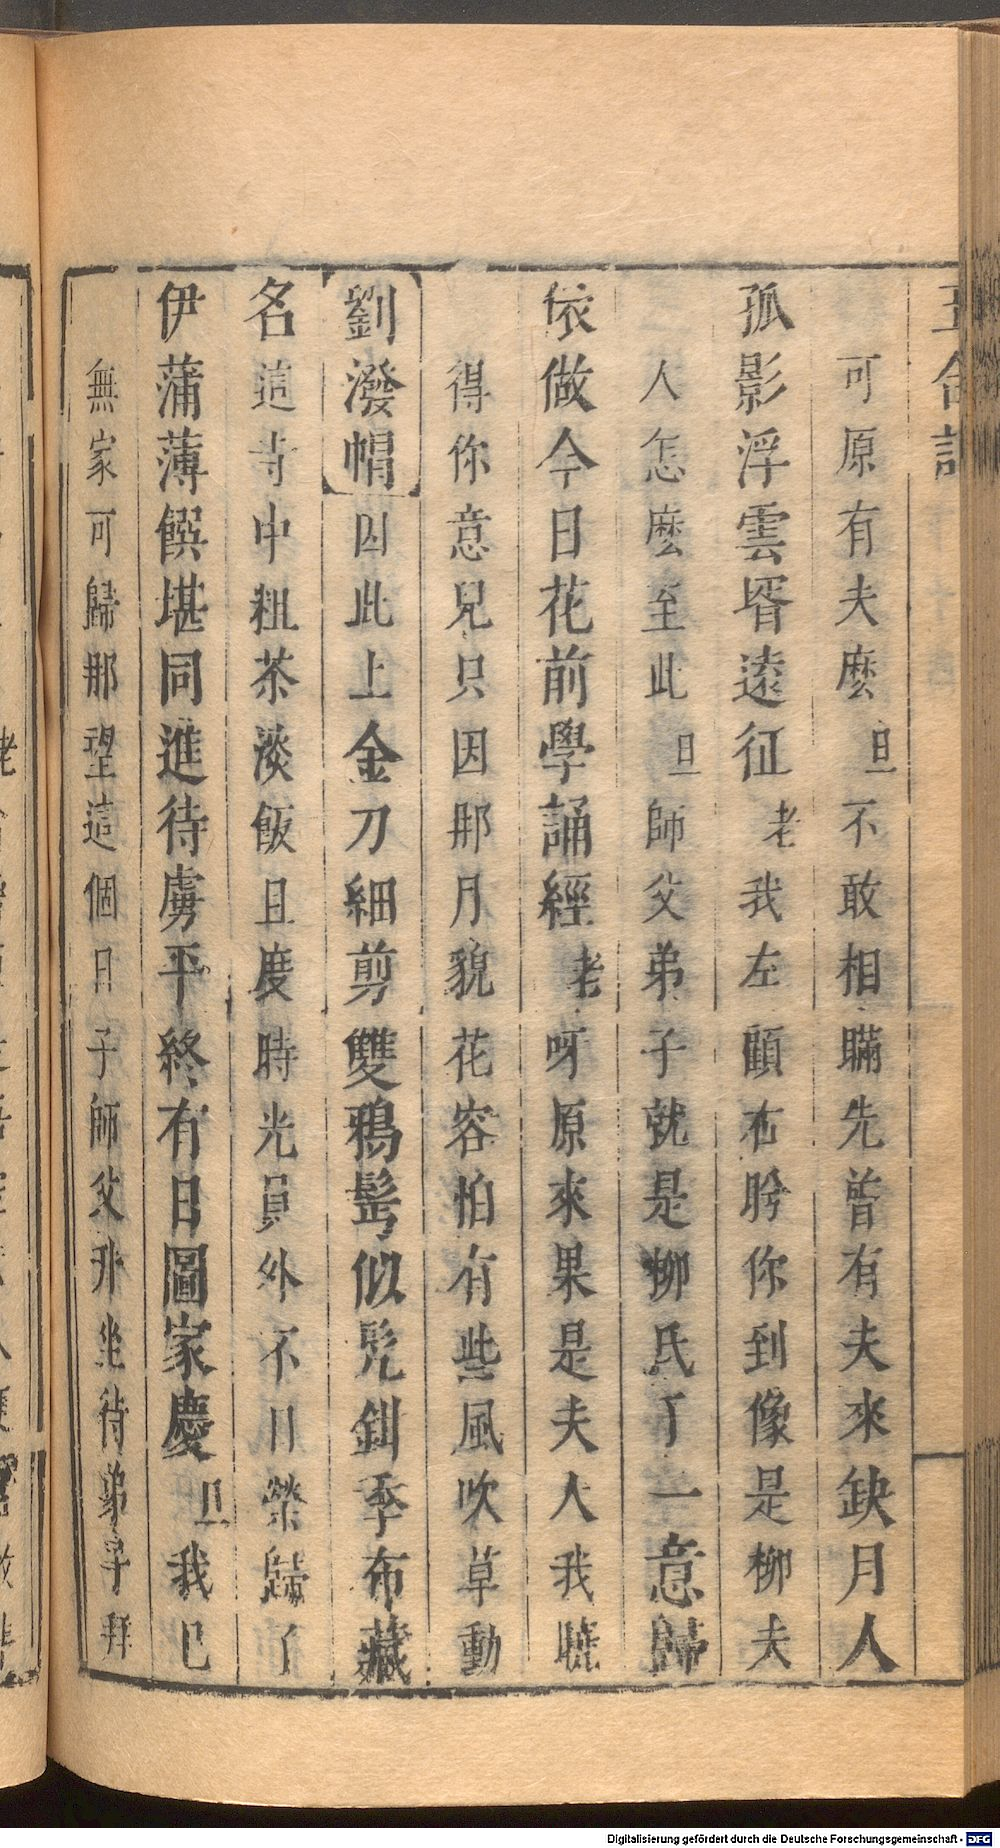 玉合記
可原有夫麽旦不敢相瞞先曾有夫來缺月人
孤影浮雲壻遠征老我左顧右盻你到像是柳夫
人怎麽至此旦師父弟子就是柳氏了一意歸
依做今日花前學誦經老呀原來果是夫人我曉
得你意兒只因那月貌花容怕有些風吹草動
劉潑帽因此上金刀細剪雙鴉髩似髡鉗季布藏
名這寺中粗茶淡飯且度時光員外不日榮歸了
伊蒲薄饌堪同進待虜平終有日圖家慶旦我已
無家可歸那望這個日子師父升坐待弟子拜
Digitalisierung gefördert durch die Deutsche Forschungsgemeinschaft - DFG